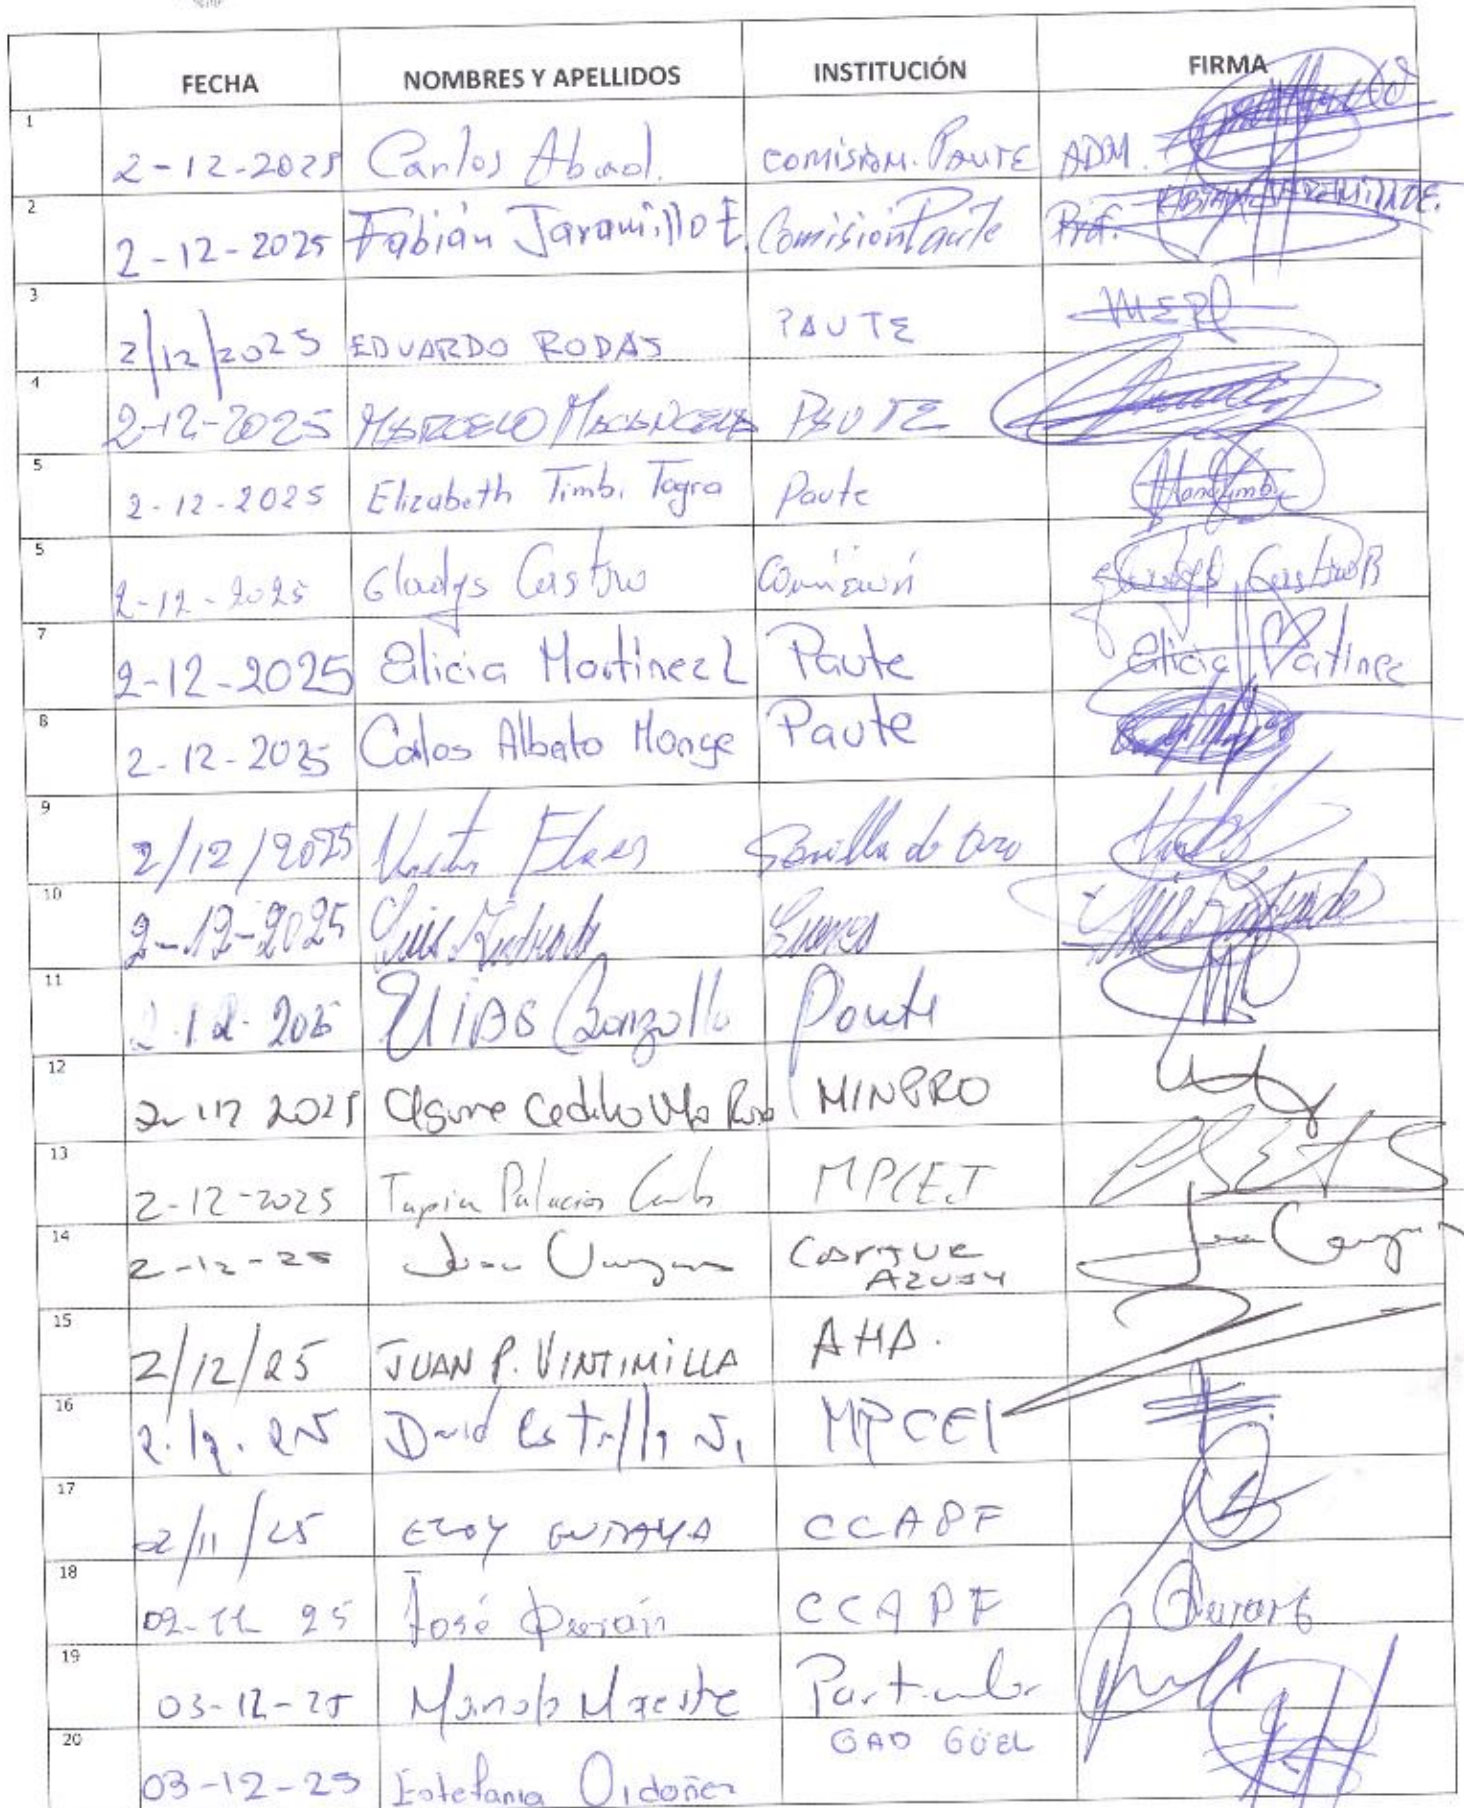 FECHA NOMBRES Y APELLIDOS INSTITUCIÓN FIRMA
1 2-12-2025 Carlos Abad. COMISION. PAUTE ADM.
2 2-12-2025 Fabián Jaramillo E. Comisión Paute Prof. FABIAN JARAMILLO E.
3 2/12/2025 EDUARDO RODAS PAUTE MERL
4 2-12-2025 MARCELO MACANCELA PAUTE
5 2-12-2025 Elizabeth Timbi Tagra Paute
5 2-12-2025 Gladys Castro Comisión Gladys Castro B
7 2-12-2025 Elicia Martinez L Paute Elicia Matinez
8 2-12-2025 Calos Albato Monge Paute
9 2/12/2025 Flores Sevilla de Oro
10 2-12-2025 Luis Andrade Luis Andrade
11 2-12-2025 Elias Paute
12 2-12 2025 Cedillo MINPRO
13 2-12-2025 Tapia Palacios Carlos MPCEI
14 2-12-25 Juan AZUAY
15 2/12/25 JUAN P. VINTIMILLA AHA.
16 2.12.25 David Castillo MPCEI
17 2/11/25 ELOY GUTAMA CCAPF
18 02-11 25 José Durán CCAPF
19 03-12-25 Particular
20 03-12-25 Estefania Ordoñez GAD GÜEL